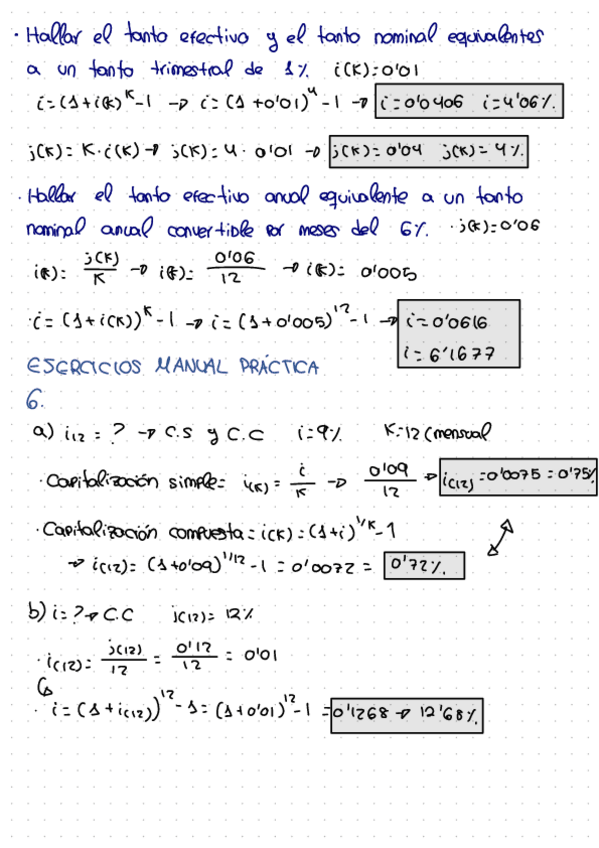 · Hallar el tanto efectivo y el tanto nominal equivalentes
a un tanto trimestral de 1%. i(K)=0'01
i=(1+i(k))^K-1 → i=(1+0'01)^4-1 → i=0'0406 i=4'06%.
j(K)= K·i(K) → j(K)=4·0'01 → j(K)=0'04 j(K)=4%
· Hallar el tanto efectivo anual equivalente a un tanto
nominal anual convertible por meses del 6%. · j(K)=0'06
i(K)= j(K)/K → i(K)= 0'06/12 → i(K)= 0'005
· i=(1+i(K))^K-1 → i=(1+0'005)^12-1 → i=0'0616
i=6'1677
EJERCICIOS MANUAL PRÁCTICA
6.
a) i12 = ? → C.S y C.C i=9% K=12 (mensual
· Capitalización simple= i(K)= i/K → 0'09/12 → i(12)=0'0075=0'75%
· Capitalización compuesta= i(K)=(1+i)^1/K-1
→ i(12)=(1+0'09)^1/12-1=0'0072= 0'72%.
b) i=? → C.C j(12)=12%
· i(12)= j(12)/12 = 0'12/12 = 0'01
· i=(1+i(12))^12-1=(1+0'01)^12-1 =0'1268 → 12'68%.